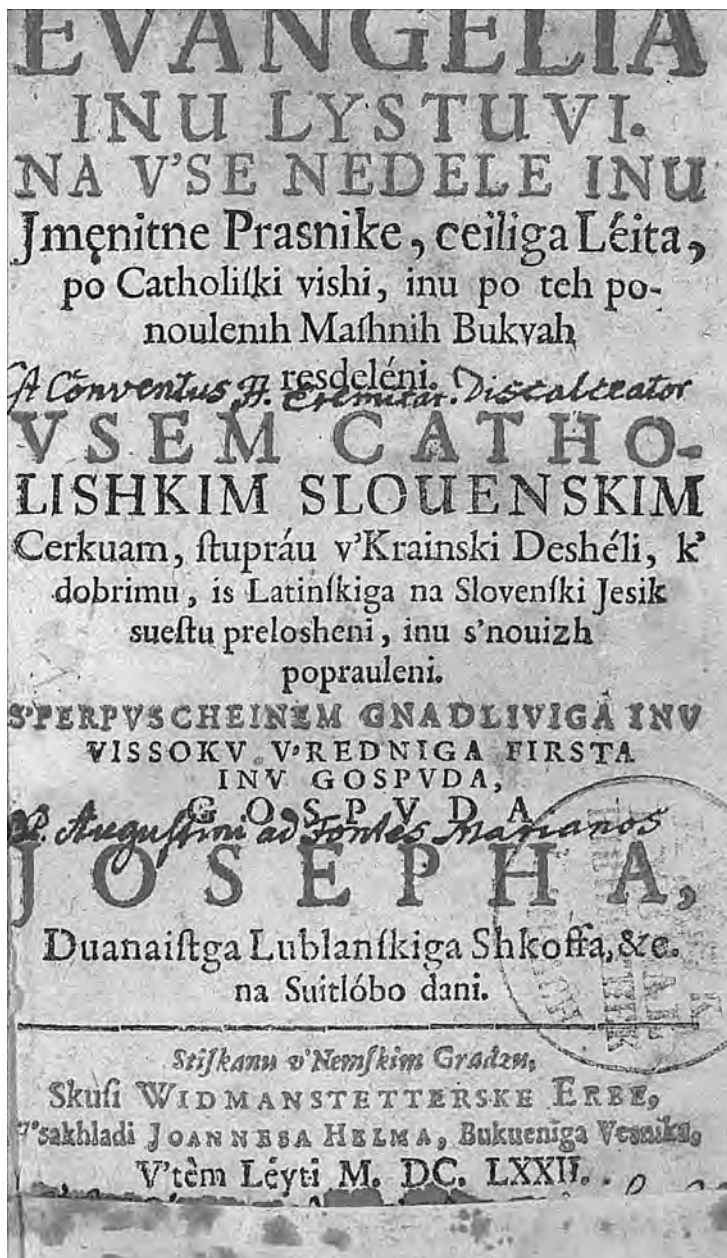 EVANGELIA
INU LYSTUVI.
NA V'SE NEDELE INU
Jmęnitne Prasnike, ceiliga Léita,
po Catholiſki vishi, inu po teh po-
noulenih Maſhnih Bukvah
resdeléni.
Conventus FF. Eremitar. Discalceator
VSEM CATHO-
LISHKIM SLOUENSKIM
Cerkuam, ſtupráu v'Krainski Deshéli, k'
dobrimu, is Latinſkiga na Slovenſki Jesik
sueſtu prelosheni, inu s'nouizh
poprauleni.
S'PERPVSCHEINEM GNADLIVIGA INV
VISSOKV V'REDNIGA FIRSTA
INV GOSPVDA,
GOSPVDA
P. Auguſtini ad Fontes Marianos
JOSEPHA,
Duanaiſtga Lublanſkiga Shkoffa, &c.
na Suitlóbo dani.
Stiſkanu v'Nemſkim Gradzu,
Skusi WIDMANSTETTERSKE ERBE,
V'sakhladi JOANNESA HELMA, Bukueniga Vesnika,
V'tèm Léyti M. DC. LXXII.